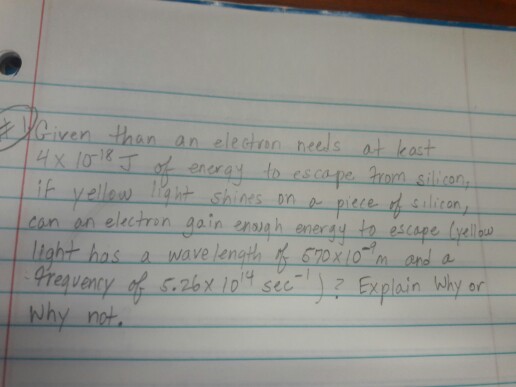 # 1 Given than an electron needs at least
4 x 10^-18 J of energy to escape from silicon,
if yellow light shines on a piece of silicon,
can an electron gain enough energy to escape (yellow
light has a wavelength of 570x10^-9 m and a
frequency of 5.26x10^14 sec^-1)? Explain why or
why not.